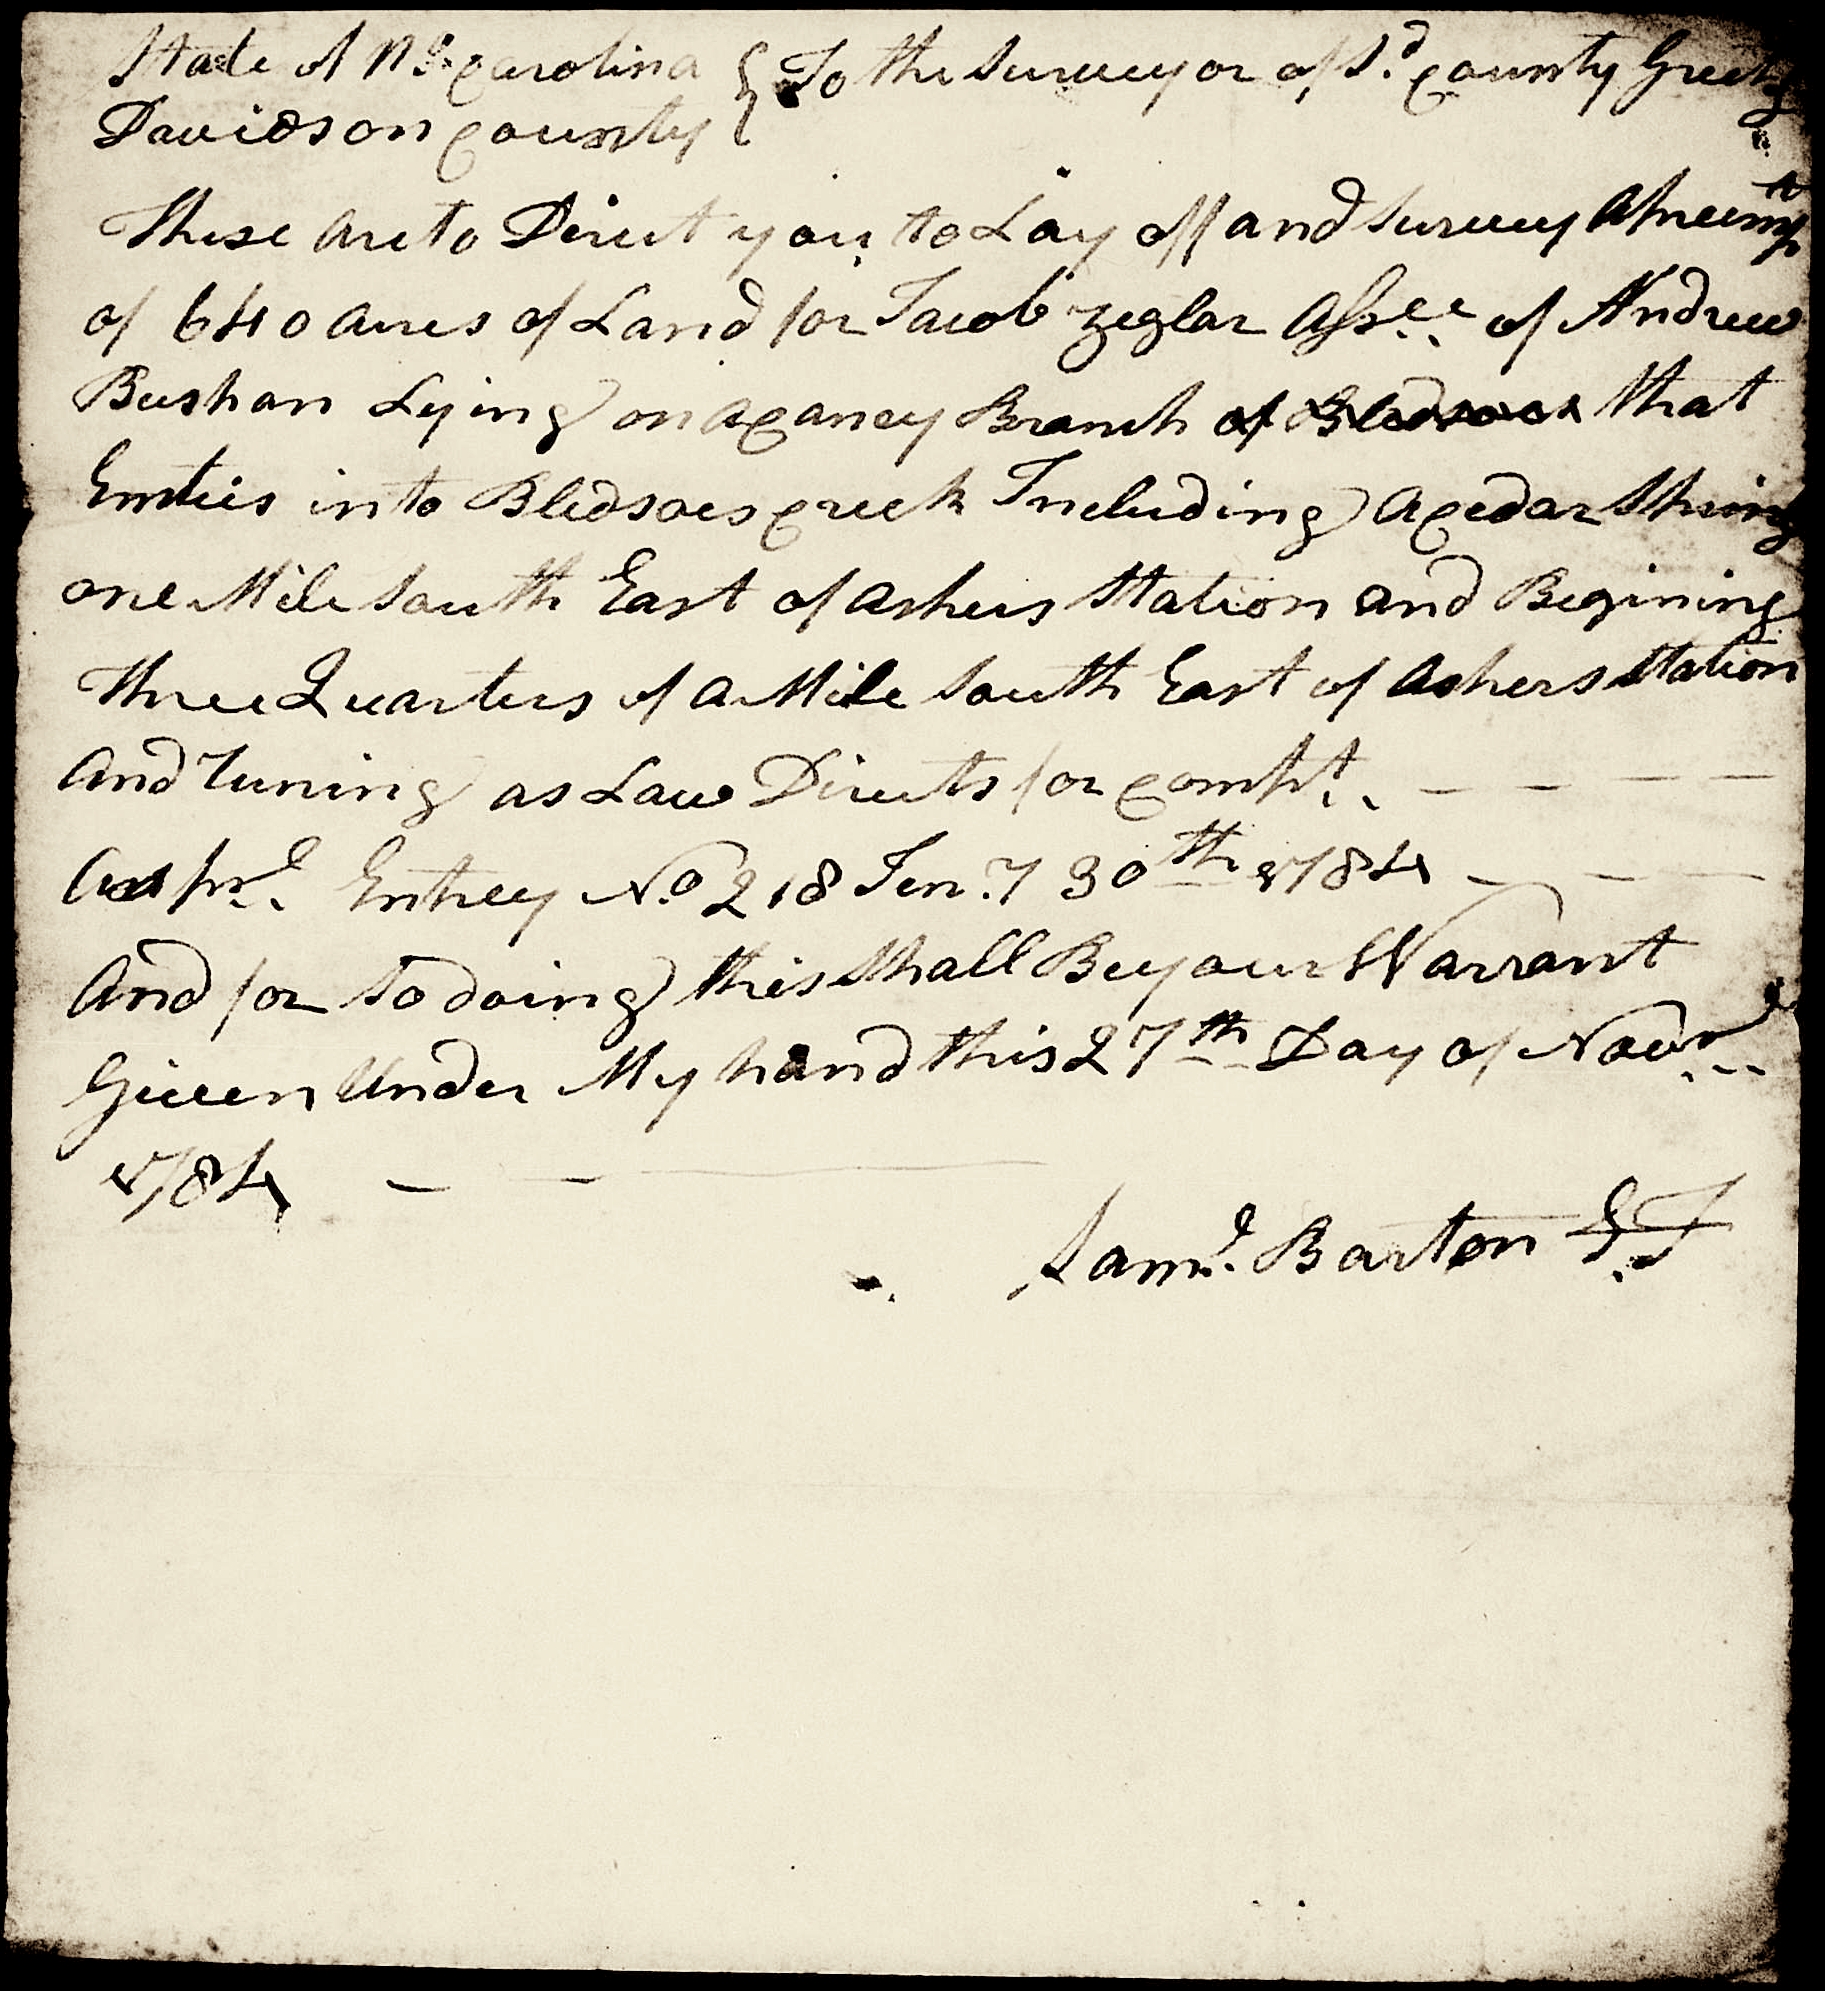 State of No. Carolina } To the Surveyor of sd. County Greetg
Davidson County
These Are to Direct you to Lay off and Survey A Preempt
of 640 Acres of Land for Jacob Zeglar Assee. of Andrew
Bushan Lying on A Caney Branch of Bledsoes that
Emties into Bledsoes Creek Including A Cedar Spring
one Mile South East of Ashers Station and Begining
three Quarters of A Mile South East of Ashers Station
And Runing as Law Directs for Compt. — — — —
As pr. Entrey No 218 Jen.y 30th 1784 — — —
And for So doing this Shall Be your Warrant
Given Under My hand this 27th Day of Novr
1784 — —
Saml. Barton E.T